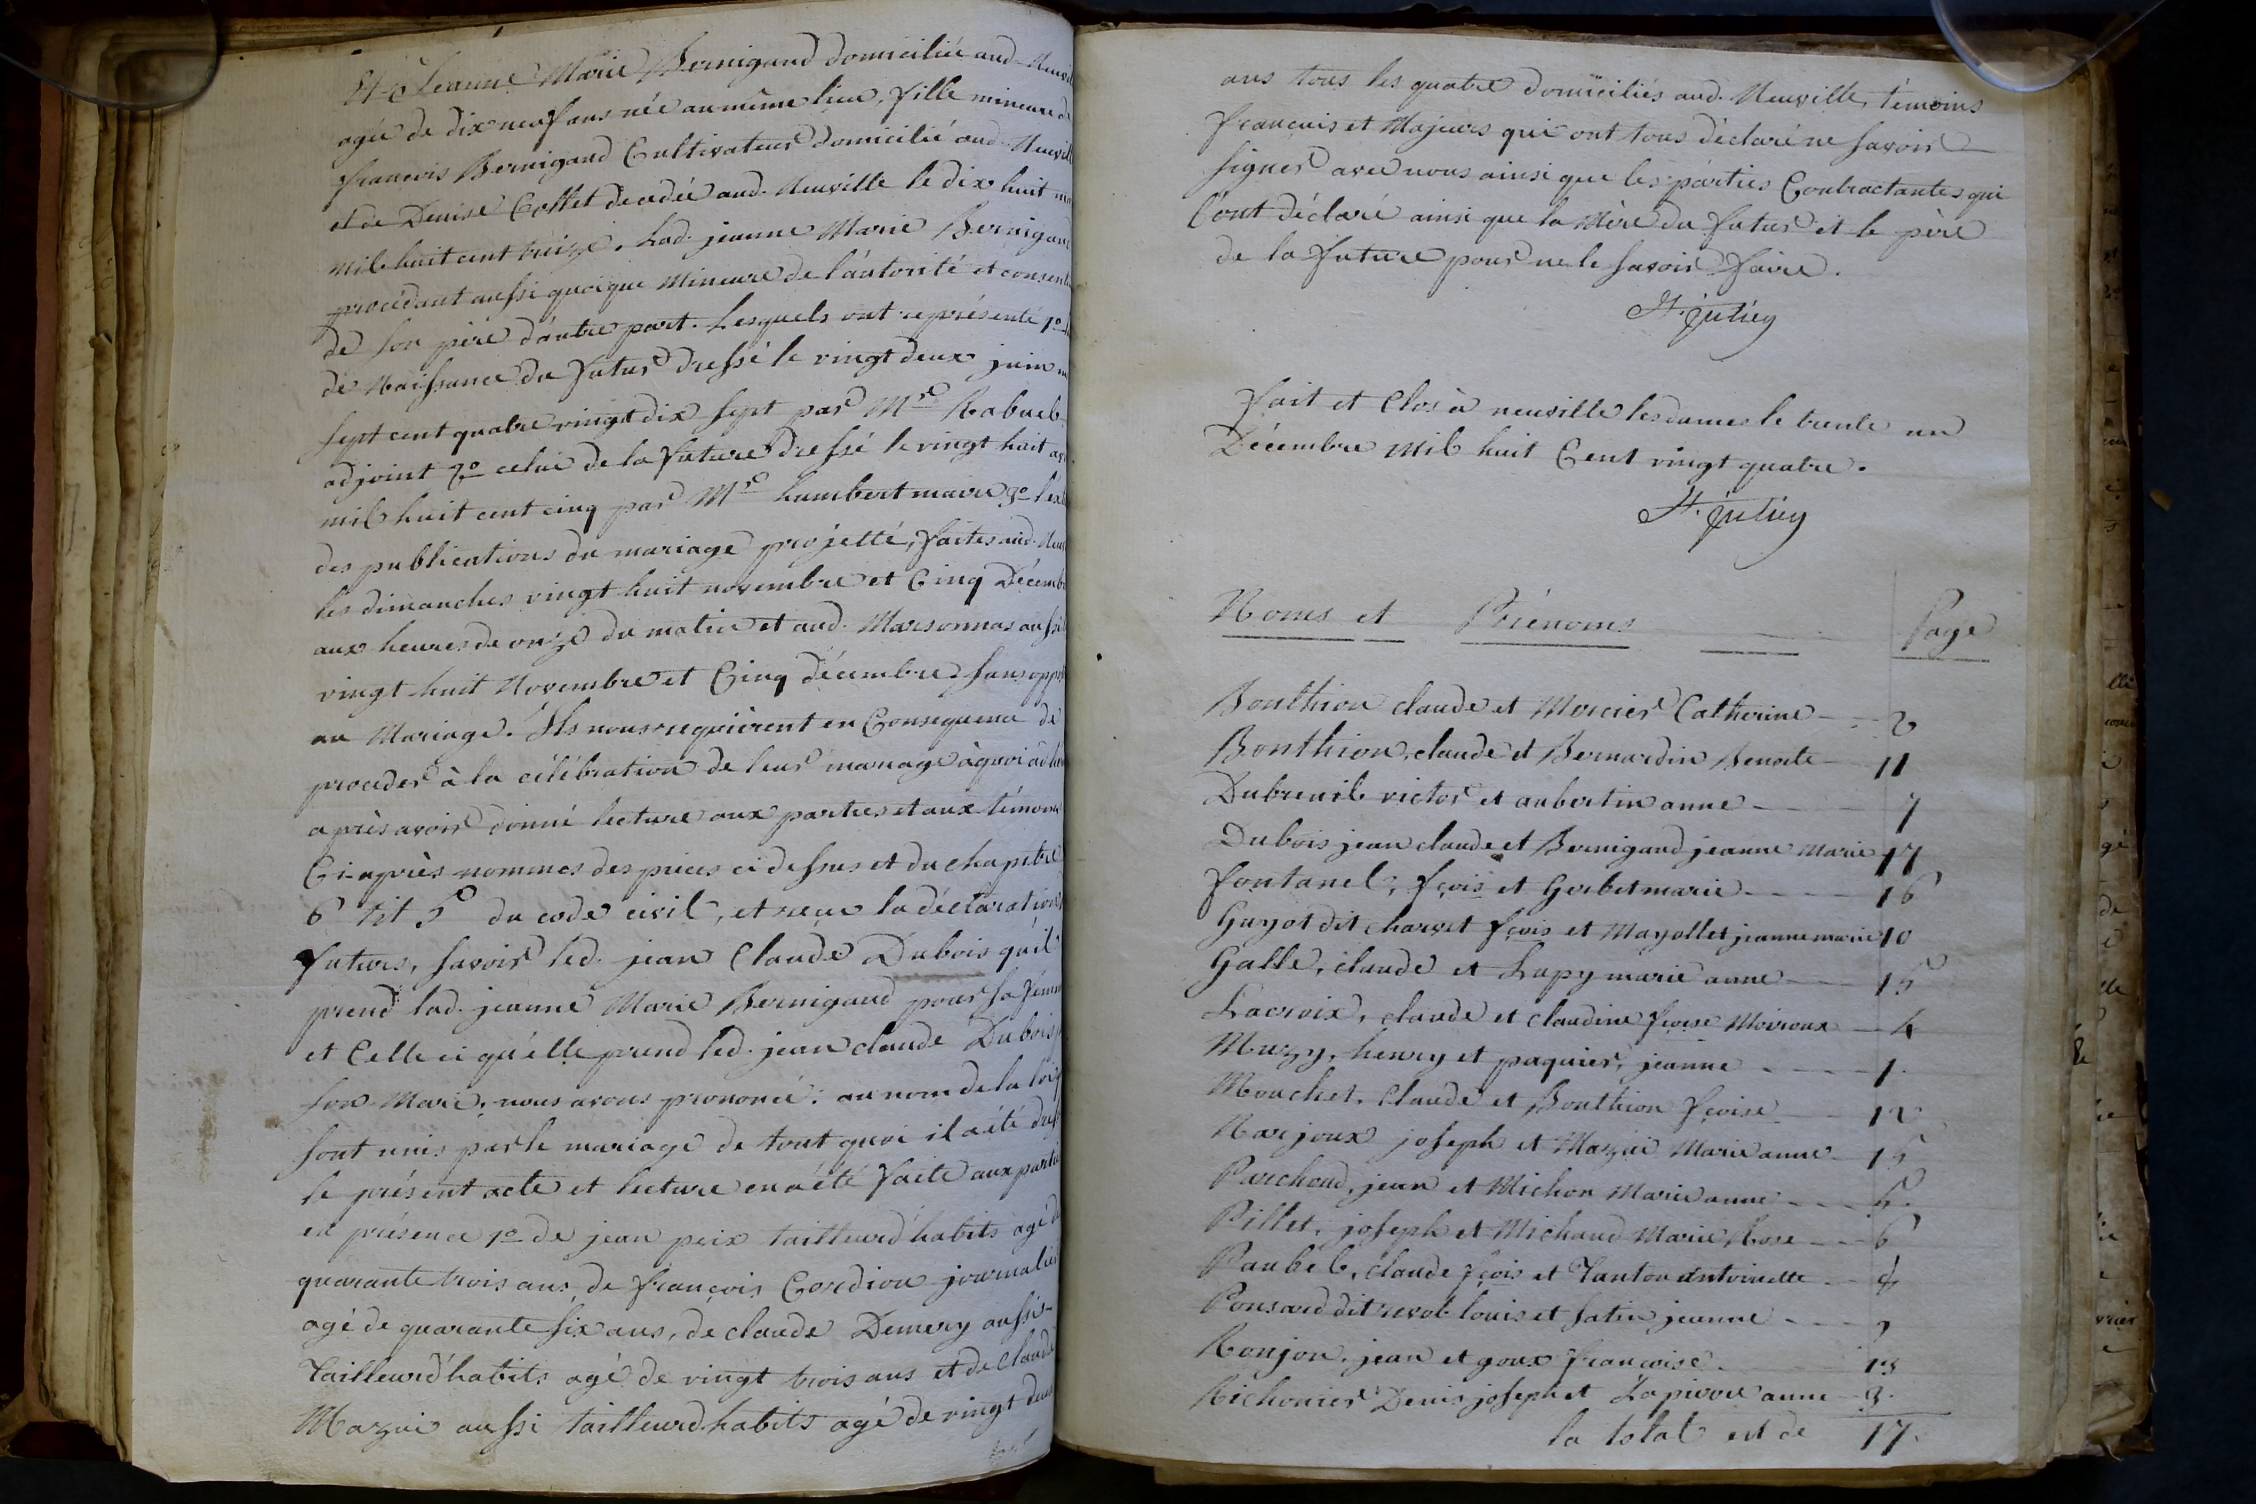 Et Jeanne Marie Bernigaud domiciliée aud. Neuvil
agée de dix neuf ans née au même lieu, fille mineure de
françois Bernigaud Cultivateur domicilié aud. Neuvill
et de Denise Collet décédée aud. Neuville le dix huit
mil huit cent treize. Lad. jeanne Marie Bernigaud
procédant aussi quoique Mineure de l'autorité et consent
de son père d'autre part. Lesquels ont représenté 1o
de Naissance du futur dressé le vingt deux juin
sept cent quatre vingt dix sept par Mr
adjoint 2o celui de la future dressé le vingt huit
mil huit cent cinq par Mr humbert maire 3o
des publications du mariage projetté, faites aud. Neu
les dimanches vingt huit novembre et Cinq Décemb
aux heures de onze du matin et aud. Marsonnas aussi
vingt huit Novembre et Cinq décembre sans oppo
au Mariage. Ils nous requièrent en Consequence de
proceder à la célébration de leur mariage à quoi
après avoir donné lecture aux parties et aux témoins
Ci-après nommés des pièces ci dessus et du chapitre
6 tit 5e du code civil, et reçu la déclaration
futurs, savoir led. jean Claude Dubois qu'il
prend lad. jeanne Marie Bernigaud pour sa femm
et Celle ci qu'elle prend led. jean claude Dubois
son Mari, nous avons prononcé: au nom de la loi
sont unis par le mariage de tout quoi il a été dres
le présent acte et lecture en a été faite aux parti
en présence 1o de jean peix tailleur d'habits agé de
quarante trois ans, de françois Cordion journalier
agé de quarante six ans, de claude Demery aussi
Tailleur d'habits agé de vingt trois ans et de Claude
Mazui aussi tailleur d'habits agé de vingt deux
ans tous les quatre domiciliés aud. Neuville, témoins
français et Majeurs qui ont tous déclaré ne savoir
signer avec nous ainsi que les parties Contractantes qui
l'ont déclaré ainsi que la Mère du futur et le père
de la future pour ne le savoir faire.
fait et Clos à neuville les dames le trente un
Décembre mil huit Cent vingt quatre.
Noms et Prénoms Page
Bonthion claude et Mercier Catherine 2
Bonthion, claude et Bernardin Benoite 11
Dubreuil victor et aubertin anne 7
Dubois jean claude et Bernigaud jeanne Marie 17
fontanel, fçois et Gerbet marie 16
Guyot dit charvet fçois et Mayollet jeanne marie 10
Galle, claude et Lapy marie anne 15
Lacroix, claude et claudine fçoise Moiroux 4
Muzy, henry et paquier, jeanne 1
Mouchet, Claude et Bonthion fçoise 12
Narjoux joseph et Mazui Marie anne 15
Perchoud, jean et Michon Marie anne 5
Pillet, joseph et Michaud Marie Rose 6
Paubel, claude fçois et Tanton antoinette
Ponsard dit revol louis et satin jeanne
Ronjon, jean et goux françoise 13
Richonier Denis joseph et Lapierre anne 3.
la total est de 17.